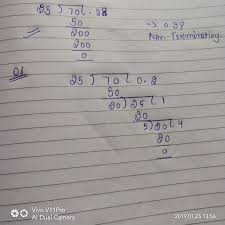 25 ) 70 ( .28
50
200
200
0
⇒ 0.28
Non-Terminating
Or
25 ) 70 ( 0.2
50
20 ) 25 ( 1
20
5 ) 20 ( 4
20
0
Vivo V11Pro
AI Dual Camera
2019.01.25 13:56